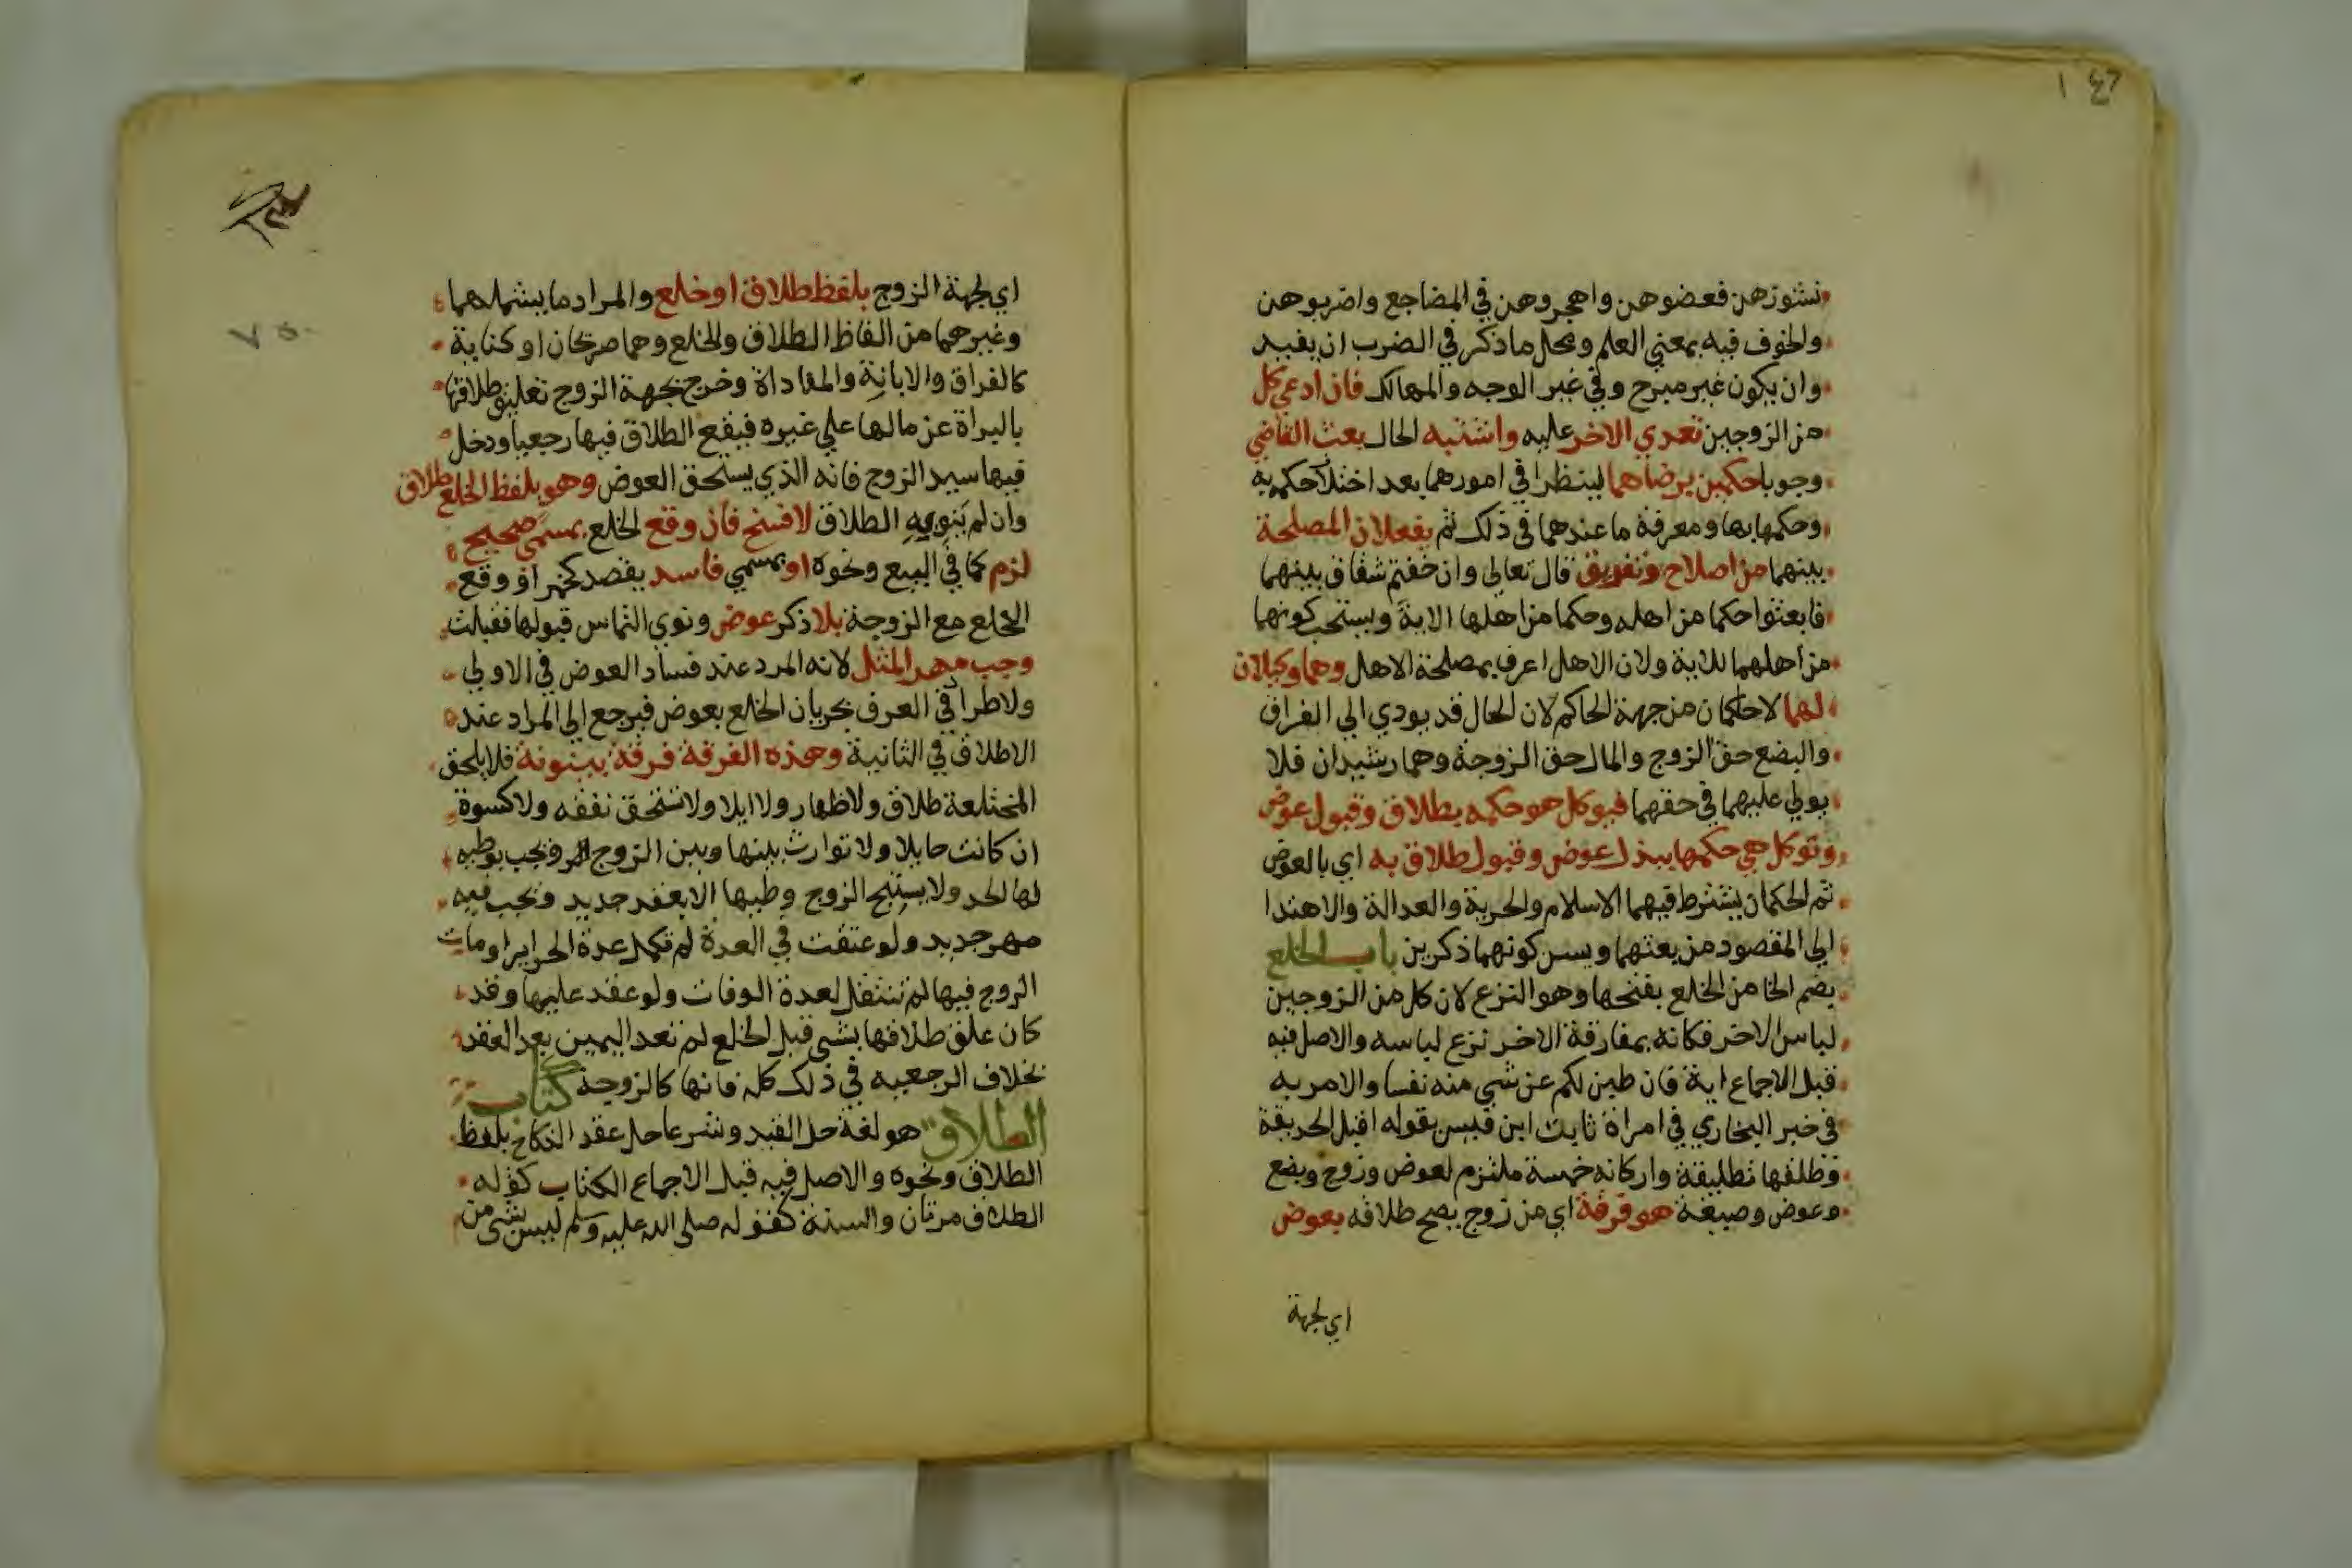 نشوزهن فعضوهن واهجروهن في المضاجع واضربوهن
والخوف فيه بمعني العلم ومحل ما ذكر في الضرب ان يفيد
وان يكون غير مبرح وفي غير الوجه والمهالك فان ادعي كل
من الزوجين تعدي الاخر عليه واشتبه الحال بعث القاضي
وجوبا حكمين برضاهما لينظرا في امورهما بعد اختلا حكمه به
وحكمها بها ومعرفة ما عندهما في ذلك ثم يفعلان المصلحة
بينهما من اصلاح وتفريق قال تعالي وان خفتم شقاق بينهما
فابعثوا حكما من اهله وحكما من اهلها الاية ويستحب كونهما
من اهلهما للاية ولان الاهل اعرف بمصلحة الاهل وهما وكيلان
لهما لا حاكمان من جهة الحاكم لان الحال قد يودي الي الفراق
والبضع حق الزوج والمال حق الزوجة وهما رشيدان فلا
يولي عليهما في حقهما فيوكل هو حكمه بطلاق وقبول عوض
وتوكل هي حكمها ببذل عوض وقبول طلاق به اي بالعوض
ثم الحكمان يشترط فيهما الاسلام والحرية والعدالة والاهتدا
الي المقصود من بعثهما ويسن كونهما ذكرين باب الخلع
بضم الخا من الخلع بفتحها وهو النزع لان كل من الزوجين
لباس الاخر فكانه بمفارقة الاخر نزع لباسه والاصل فيه
قبل الاجماع اية فان طبن لكم عن شي منه نفسا والامر به
في خبر البخاري في امراة ثابت ابن قيس بقوله اقبل الحديقة
وطلقها تطليقة واركانه خمسة ملتزم لعوض وزوج وبضع
وعوض وصيغة هو فرقة اي من زوج يصح طلاقه بعوض
اي لجهة
اي لجهة الزوج بلفظ طلاق او خلع والمراد ما يشملهما
وغيرهما من الفاظ الطلاق والخلع وهما صريحان او كناية
كالفراق والابانة والمفاداة وخرج بجهة الزوج تعليق طلاقها
بالبراة عن مالها علي غيره فيقع الطلاق فيها رجعيا ودخل
فيها سيد الزوج فانه الذي يستحق العوض وهو بلفظ الخلع طلاق
وان لم ينوبه الطلاق لا فسخ فان وقع الخلع بمسمي صحيح
لزم كما في البيع ونحوه او بمسمي فاسد يقصد كخمر او وقع
الخلع مع الزوجة بلا ذكر عوض ونوي التماس قبولها فقبلت
وجب مهر المثل لانه المرد عند فساد العوض في الاولي
ولاطراد في العرف بجريان الخلع بعوض فيرجع الي المراد عند
الاطلاق في الثانية وهذه الفرقة فرقة بينونة فلا يلحق
المختلعة طلاق ولا ظهار ولا ايلا ولا تستحق نفقه ولا كسوة
ان كانت حايلا ولا توارث بينها وبين الزوج ويجب بوطيه
لها الحد ولا يستبيح الزوج وطيها الا بعقد جديد ويجب فيه
مهر جديد ولو عتقت في العدة لم تكمل عدة الحراير او مات
الزوج فيها لم تنتقل لعدة الوفات ولو عقد عليها وقد
كان علق طلاقها بشي قبل الخلع لم تعد اليمين بعد العقد
بخلاف الرجعيه في ذلك كله فانها كالزوجة كتاب
الطلاق هو لغة حل القيد وشرعا حل عقد النكاح بلفظ
الطلاق ونحوه والاصل فيه قبل الاجماع الكتاب كقوله
الطلاق مرتان والسنة كقوله صلي الله عليه وسلم ليس شي من